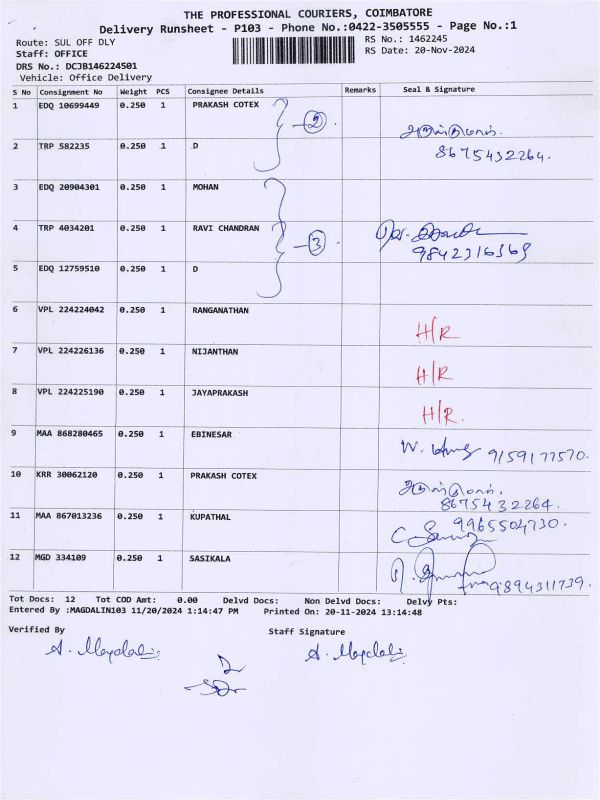 THE PROFESSIONAL COURIERS, COIMBATORE
Delivery Runsheet - P103 - Phone No.:0422-3505555 - Page No.:1
Route: SUL OFF DLY
RS No.: 1462245
Staff: OFFICE
RS Date: 20-Nov-2024
DRS No.: DCJB146224501
Vehicle: Office Delivery
S No Consignment No Weight PCS Consignee Details Remarks Seal & Signature
1 EDQ 10699449 0.250 1 PRAKASH COTEX
2
2 TRP 582235 0.250 1 D
8675432264.
3 EDQ 20904301 0.250 1 MOHAN
4 TRP 4034201 0.250 1 RAVI CHANDRAN
3
9842316369
5 EDQ 12759510 0.250 1 D
6 VPL 224224042 0.250 1 RANGANATHAN H/R
7 VPL 224226136 0.250 1 NIJANTHAN H/R
8 VPL 224225190 0.250 1 JAYAPRAKASH H/R.
9 MAA 868280465 0.250 1 EBINESAR 9159177570.
10 KRR 30062120 0.250 1 PRAKASH COTEX
8675432264.
11 MAA 867013236 0.250 1 KUPATHAL 9965504730.
12 MGD 334109 0.250 1 SASIKALA
9894311739.
Tot Docs: 12 Tot COD Amt: 0.00 Delvd Docs: Non Delvd Docs: Delvy Pts:
Entered By :MAGDALIN103 11/20/2024 1:14:47 PM Printed On: 20-11-2024 13:14:48
Verified By Staff Signature